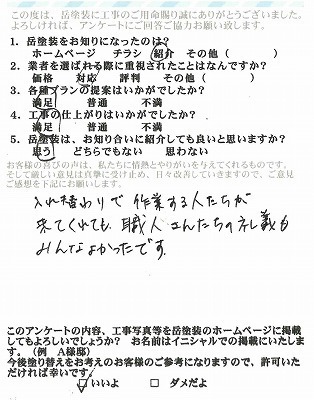 この度は、岳塗装に工事のご用命賜り誠にありがとうございます。
よろしければ、アンケートにご回答ご協力お願い致します。
1．岳塗装をお知りになったのは？
ホームページ　チラシ　紹介　その他（　　　）
2．業者を選ばれる際に重視されたことはなんですか？
価格　　対応　　評判　　その他（　　　）
3．各種プランの提案はいかがでしたか？
満足　　普通　　不満
4．工事の仕上がりはいかがでしたか？
満足　　普通　　不満
5．岳塗装は、お知り合いに紹介しても良いと思いますか？
思う　　どちらでもない　　思わない
お客様の喜びの声は、私たちに情熱とやりがいを与えてくれるものです。
そして厳しい意見は真摯に受け止め、日々改善していきますので、ご意見
ご感想を下記にお願いします。
入れ替わりで作業する人たちが
来てくれても、職人さんたちの礼義も
みんなよかったです。
このアンケートの内容、工事写真等を岳塗装のホームページに掲載
してもよろしいでしょうか？　お名前はイニシャルでの掲載にいたしま
す。（例　A様邸）
今後塗り替えをお考えのお客様のご参考になりますので、許可いた
だければ幸いです。
☑いいよ　　□　ダメだよ